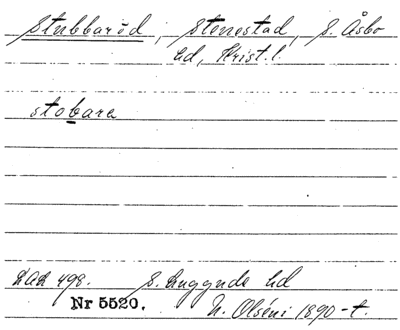 Stubbaröd, Stenestad, S. Åsbo
hd, Krist. l.
stobara
LAL 498. S. Luggude hd
Nr 5520. N. Olséni 1890-t.